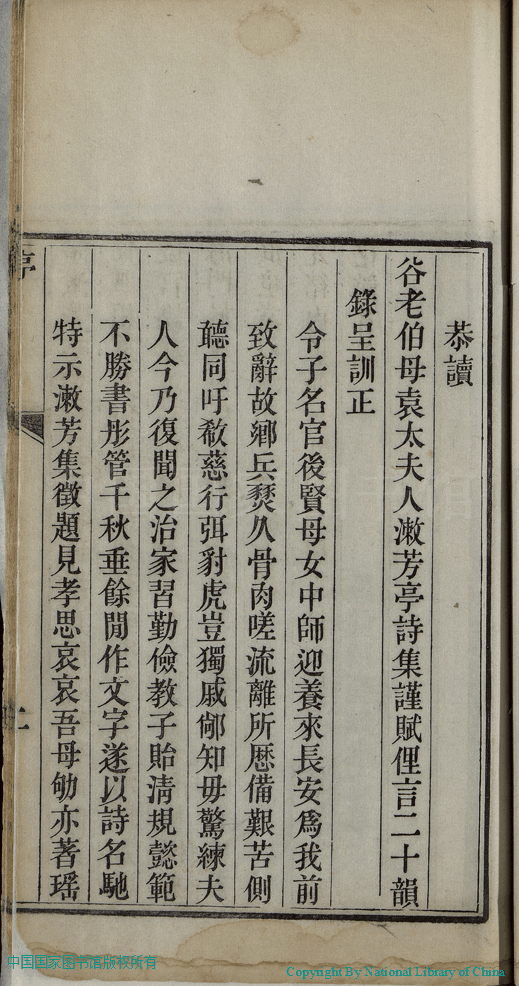 恭讀
谷老伯母袁太夫人漱芳亭詩集謹賦俚言二十韻
錄呈訓正
令子名官後賢母女中師迎養來長安爲我前
致辭故鄉兵燹久骨肉嗟流離所歷備艱苦側
聽同吁欷慈行弭豺虎豈獨戚鄉知毋驚練夫
人今乃復聞之治家習勤儉教子貽清規懿範
不勝書彤管千秋垂餘閒作文字遂以詩名馳
特示漱芳集徵題見孝思哀哀吾母劬亦著瑶
亭
二
中国国家图书馆版权所有
Copyright By National Library of China